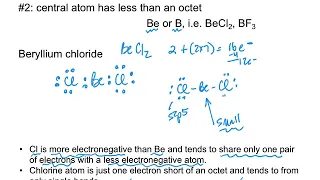 #2: central atom has less than an octet
Be or B, i.e. BeCl₂, BF₃
Beryllium chloride
BeCl₂ 2 + (2×7) = 16e⁻
-4
12e⁻
Cl Be Cl
Cl - Be - Cl
small
• Cl is more electronegative than Be and tends to share only one pair
of electrons with a less electronegative atom.
• Chlorine atom is just one electron short of an octet and tends to from